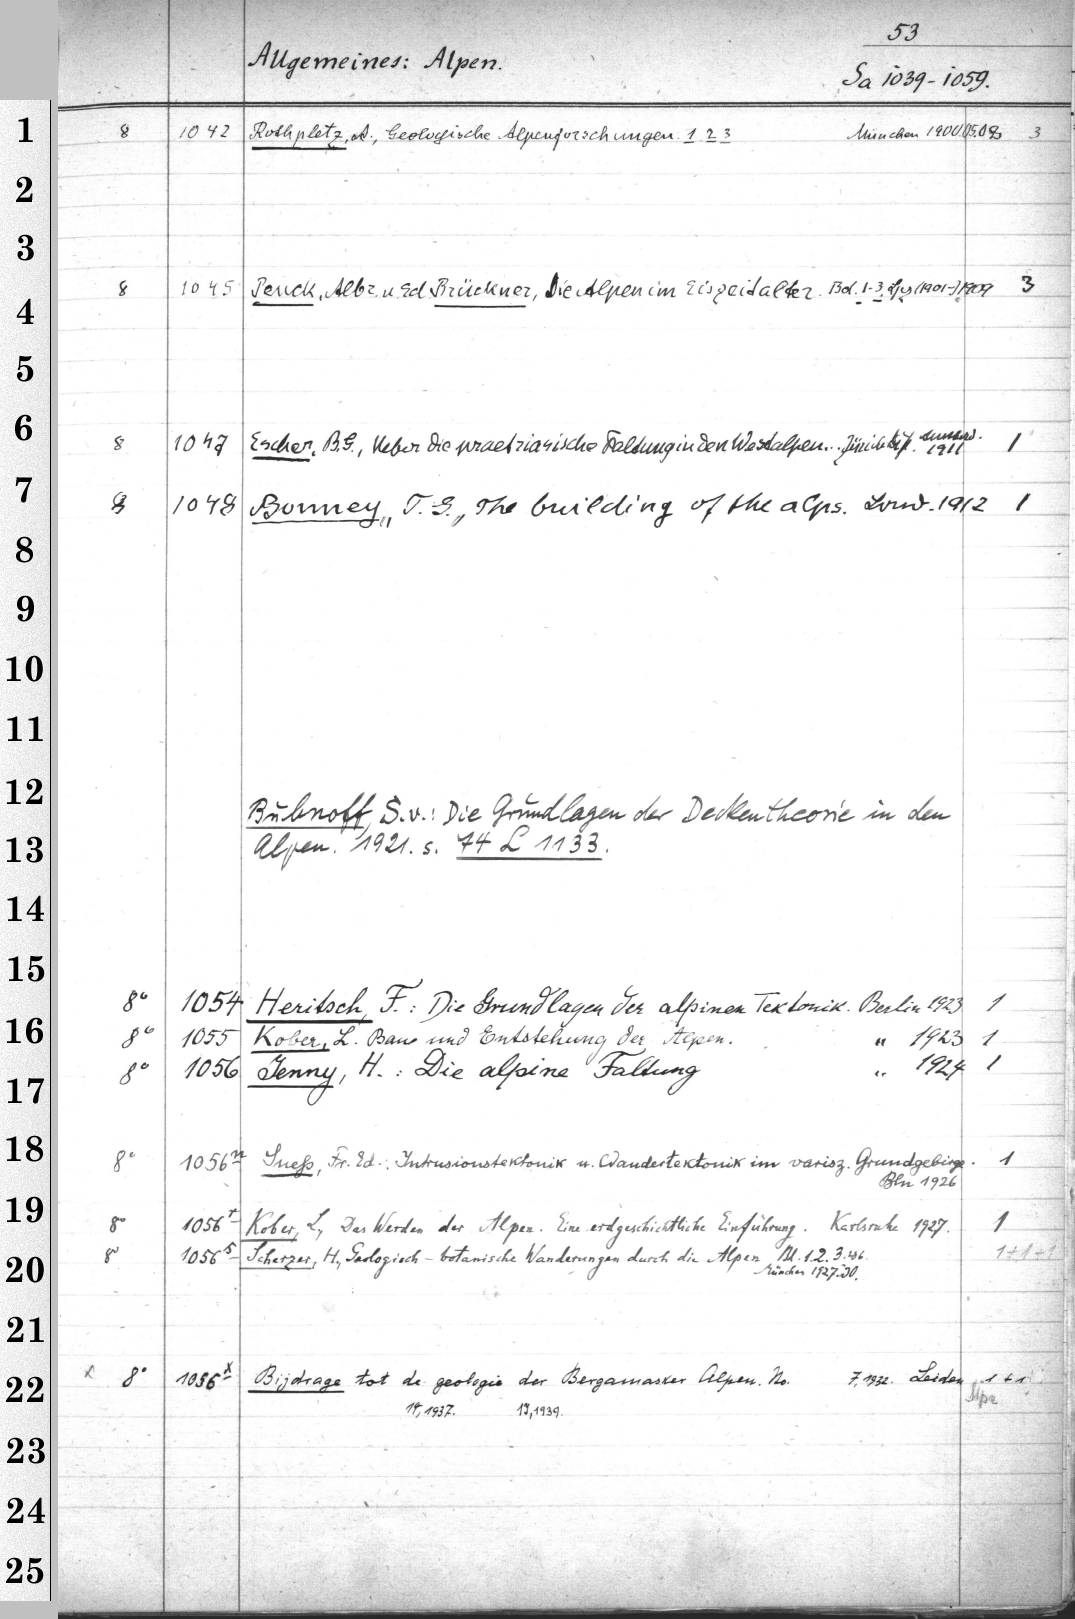 53
Allgemeines: Alpen.
Sa 1039-1059.
1 8 1042 Rothpletz, A., Geologische Alpenforschungen. 1 2 3 München 1900.05.08 3
2
3
4 8 1045 Penck, Albr. u. Ed. Brückner, Die Alpen im Eiszeitalter. Bd. 1-3. (1901-) 1909 3
5
6 8 1047 Escher, B.G., Ueber die praetriasische Faltung in den Westalpen... Zürich 1911 1
7 8 1048 Bonney, T. G., The building of the alps. Lond. 1912 1
8
9
10
11
12 Bubnoff, S. v.: Die Grundlagen der Deckentheorie in den
13 Alpen. 1921. s. 74 L 1133.
14
15
8° 1054 Heritsch, F.: Die Grundlagen der alpinen Tektonik. Berlin 1923 1
16 8° 1055 Kober, L. Bau und Entstehung der Alpen. " 1923 1
17 8° 1056 Jenny, H.: Die alpine Faltung " 1924 1
18 8° 1056n Sueß, Fr. Ed.: Intrusionstektonik u. Wandertektonik im varisz. Grundgebirge. 1
Bln 1926
19 8° 1056r Kober, L., Das Werden der Alpen. Eine erdgeschichtliche Einführung. Karlsruhe 1927. 1
20 8° 1056s Scherzer, H., Geologisch-botanische Wanderungen durch die Alpen Bd. 1. 2. 3. 1+1+1
München 1927.30.
21
22 x 8° 1056x Bijdrage tot de geologie der Bergamasker Alpen. No. 7, 1932. Leiden 1+1
14, 1937. 19, 1939.
23
24
25